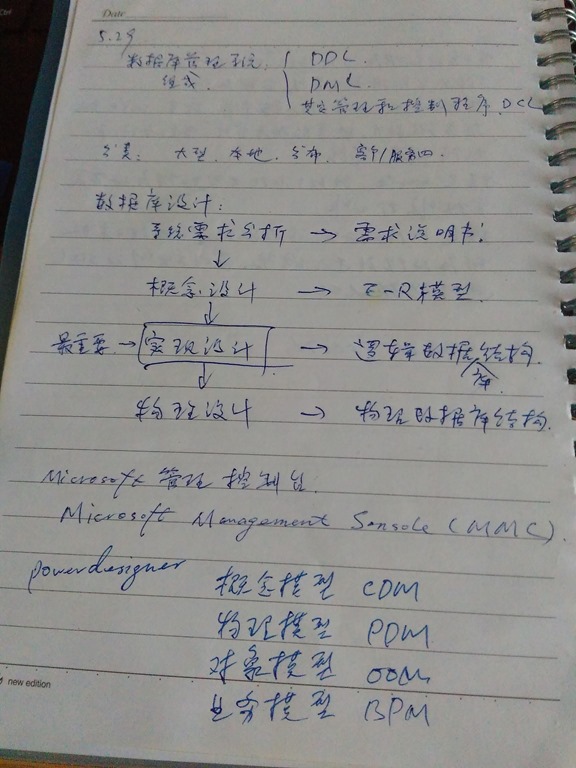 Date
5.29
数据库管理系统 DDL.
组成. DML.
其它管理和控制程序. DCL
分类: 大型. 本地. 分布. 客户/服务四.
数据库设计:
系统需求分析 → 需求说明书;
↓
概念设计 → E-R模型.
↓
最重要 → 实现设计 → 逻辑数据库结构.
↓
物理设计 → 物理数据库结构.
Microsoft 管理控制台.
Microsoft Management Sonsole (MMC).
powerdesigner 概念模型 CDM
物理模型 PDM
对象模型 OOM
业务模型 BPM
new edition